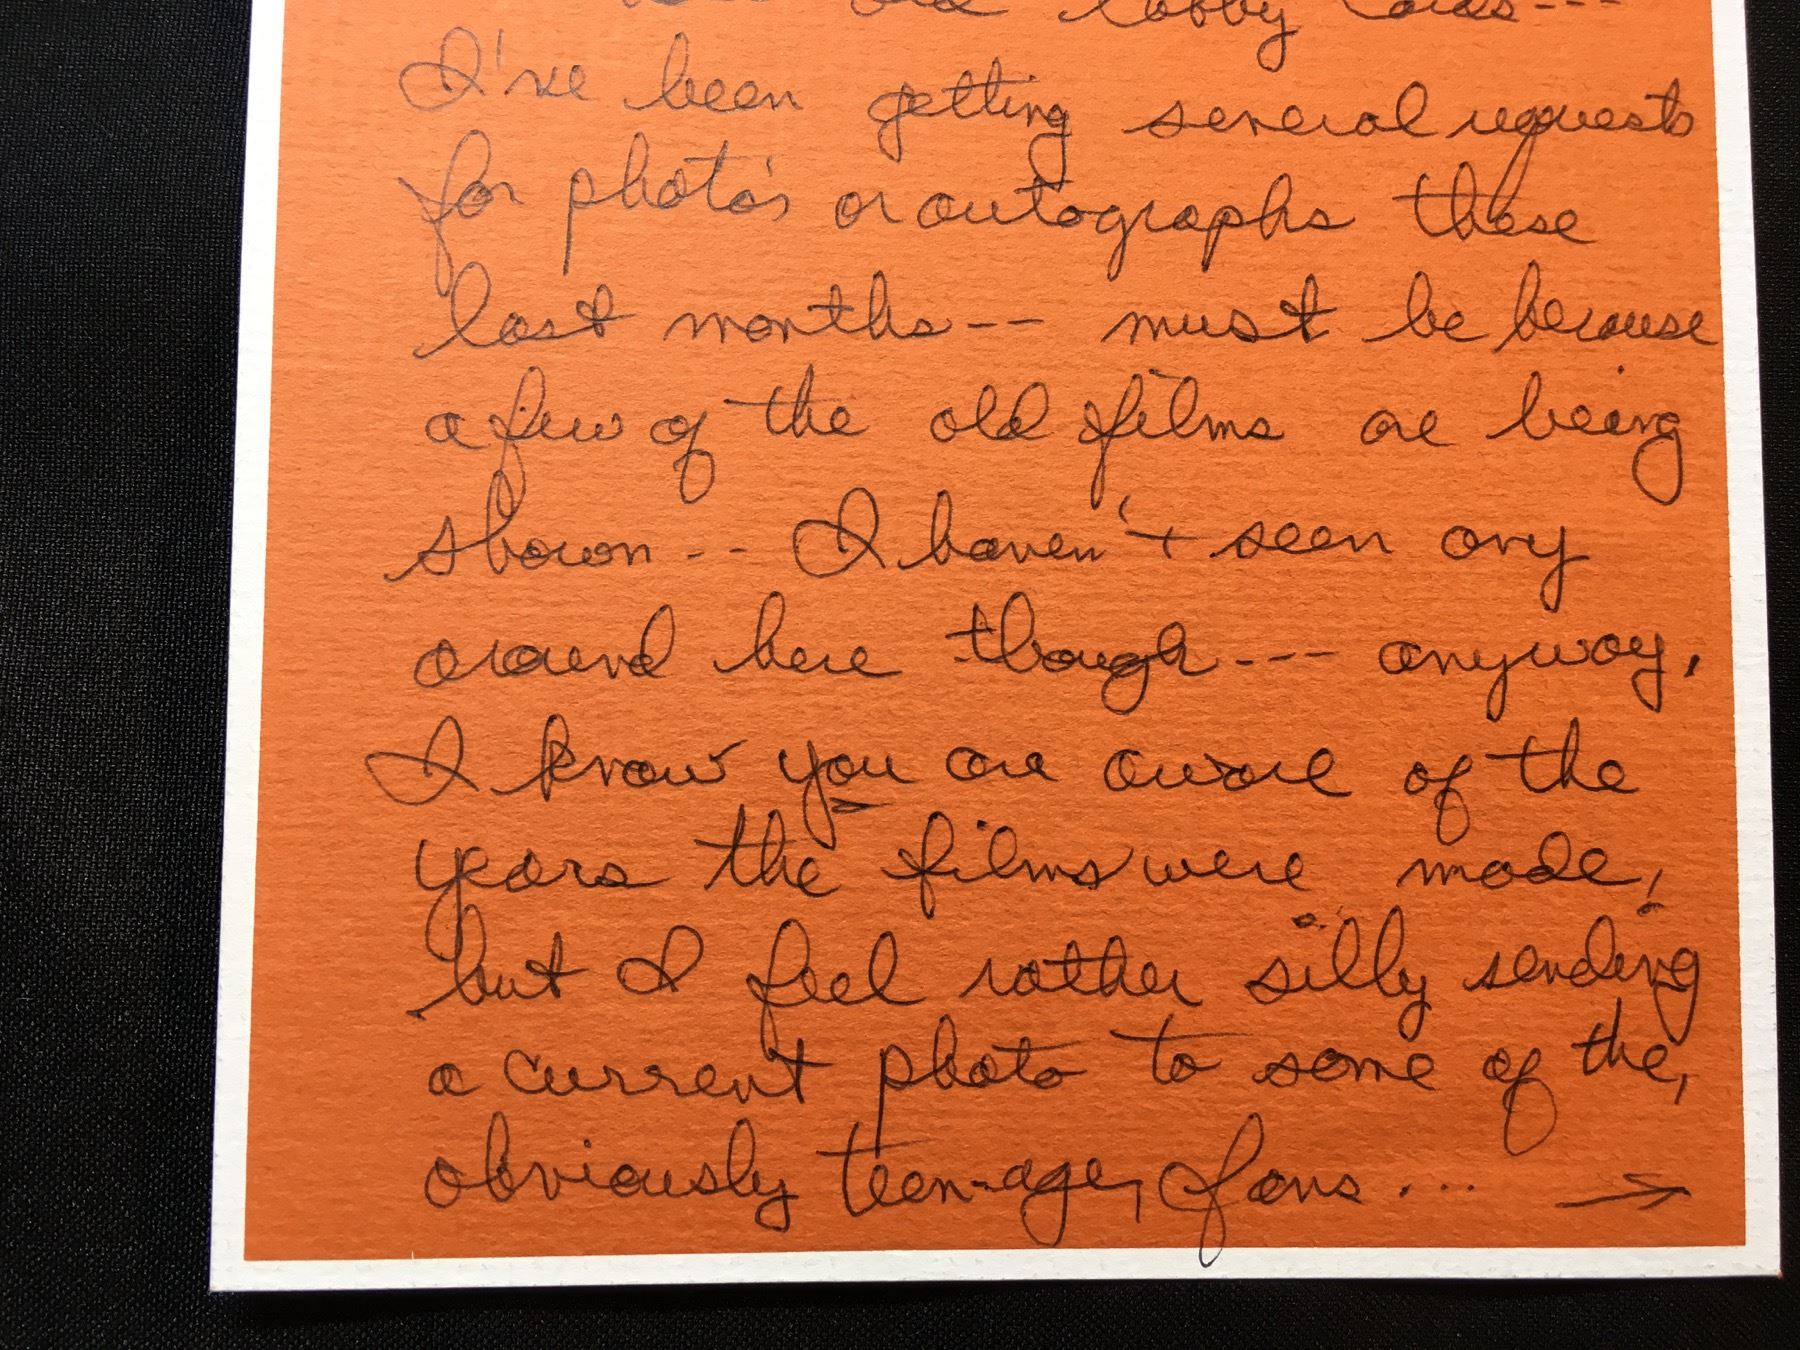 old lobby cards---
I've been getting several requests
for photo's or autographs these
last months-- must be because
a few of the old films are being
shown-- I haven't seen any
around here though--- anyway,
I know you are aware of the
years the films were made,
but I feel rather silly sending
a current photo to some of the,
obviously teen-age, fans... →